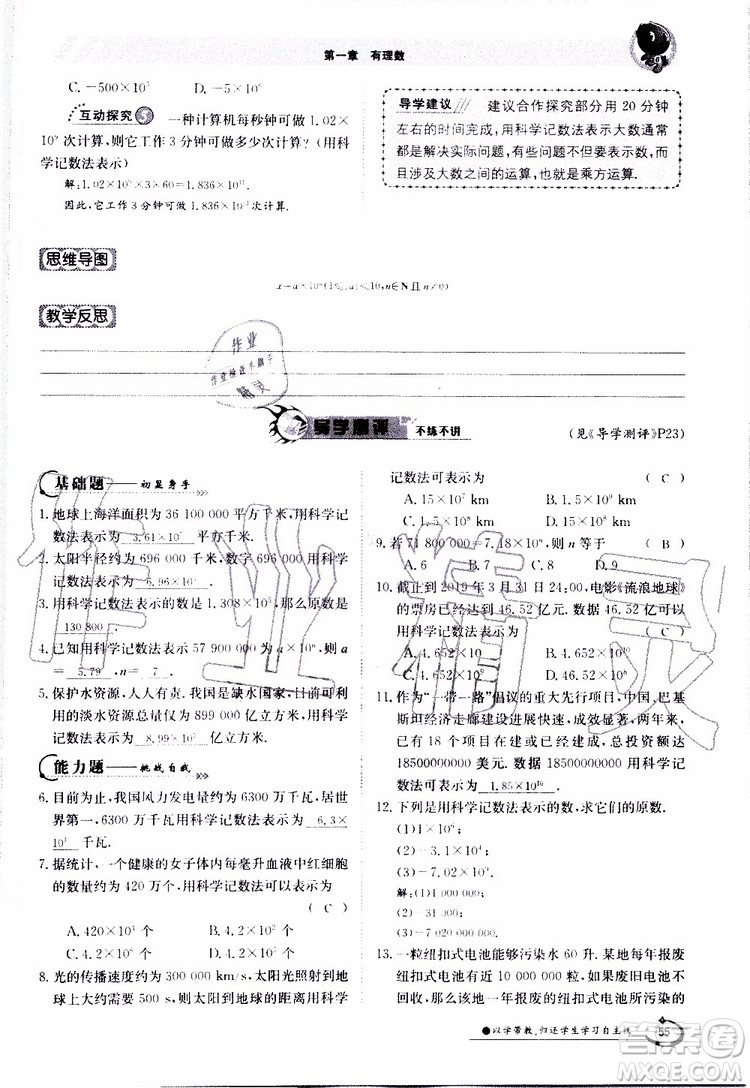 第一章 有理数
C. −500×10⁵ D. −5×10⁶
互动探究 5 一种计算机每秒钟可做 1.02×
10⁹ 次计算,则它工作 3 分钟可做多少次计算?(用科
学记数法表示)
解:1.02×10⁹×3×60=1.836×10¹¹.
因此,它工作 3 分钟可做 1.836×10¹¹ 次计算.
导学建议 建议合作探究部分用 20 分钟
左右的时间完成,用科学记数法表示大数通常
都是解决实际问题,有可能不是单一表示数,而
且涉及大数的运算,也就是乘方运算.
思维导图
教学反思
导学测评 不练不讲
(见《导学测评》P23)
基础题——初显身手
1. 地球上海洋面积为 36 100 000 平方千米,用科学记
数法表示为 3.61×10⁷ 平方千米.
2. 太阳半径约为 696 000 千米,数字 696 000 用科学
记数法表示为 6.96×10⁵ .
3. 用科学记数法表示的数是 1.308×10⁵,那么原数是
130 800 .
4. 已知用科学记数法表示 57 900 000 为 a×10ⁿ,则
a= 5.79 ,n= 7 .
5. 保护水资源,人人有责.我国是缺水国家,目前可利
用的淡水资源总量仅为 899 000 亿立方米,用科学记
数法表示为 8.99×10⁵ 亿立方米.
能力题——挑战自我
6. 目前为止,我国风力发电量约为 6300 万千瓦,居世
界第一,6300 万千瓦用科学记数法可表示为 6.3×
10⁷ 千瓦.
7. 据统计,一个健康的女子体内每毫升血液中红细胞
的数量约为 420 万个,用科学记数法可以表示为
( C )
A. 420×10⁴ 个 B. 4.2×10⁵ 个
C. 4.2×10⁶ 个 D. 42×10⁵ 个
8. 光的传播速度约为 300 000 km/s,太阳光照射到地
球上大约需要 500 s,则太阳到地球的距离用科学
记数法可表示为 ( C )
A. 15×10⁷ km B. 15×10⁸ km
C. 1.5×10⁸ km D. 1.5×10⁹ km
9. 若 71 800 000=7.18×10ⁿ,则 n 等于 ( B )
A. 6 B. 7 C. 8 D. 9
10. 截止到 2019 年 3 月 31 日 24:00,电影《流浪地球》
的票房已经达到 46.52 亿元.数据 46.52 亿可以
用科学记数法表示为 ( C )
A. 4.652×10
C. 4.652×10⁹
11. 作为“一带一路”倡议的重大先行项目,中国、巴基
斯坦经济走廊建设进展快速,成效显著,两年来,
已有 18 个项目在建或已建成,总投资额达
18500000000 美元.数据 18500000000 用科学记
数法可表示为 1.85×10¹⁰ .
12. 下列是用科学记数法表示的数,求它们的原数.
(1)1×10⁶;
(2)−3.1×10⁴;
(3)−7.02×10⁹.
解:(1)1 000 000;
(2)−31 000;
(3)−7 020 000 000.
13. 一粒纽扣式电池能够污染水 60 升.某地每年报废
的纽扣式电池有 10 000 000 粒,如果废旧电池不
回收,那么该地一年报废的纽扣式电池所污染的
●以学带教,归还学生学习自主权 55
作业
作业检查小助手
精灵
作业精灵
MXQE.COM